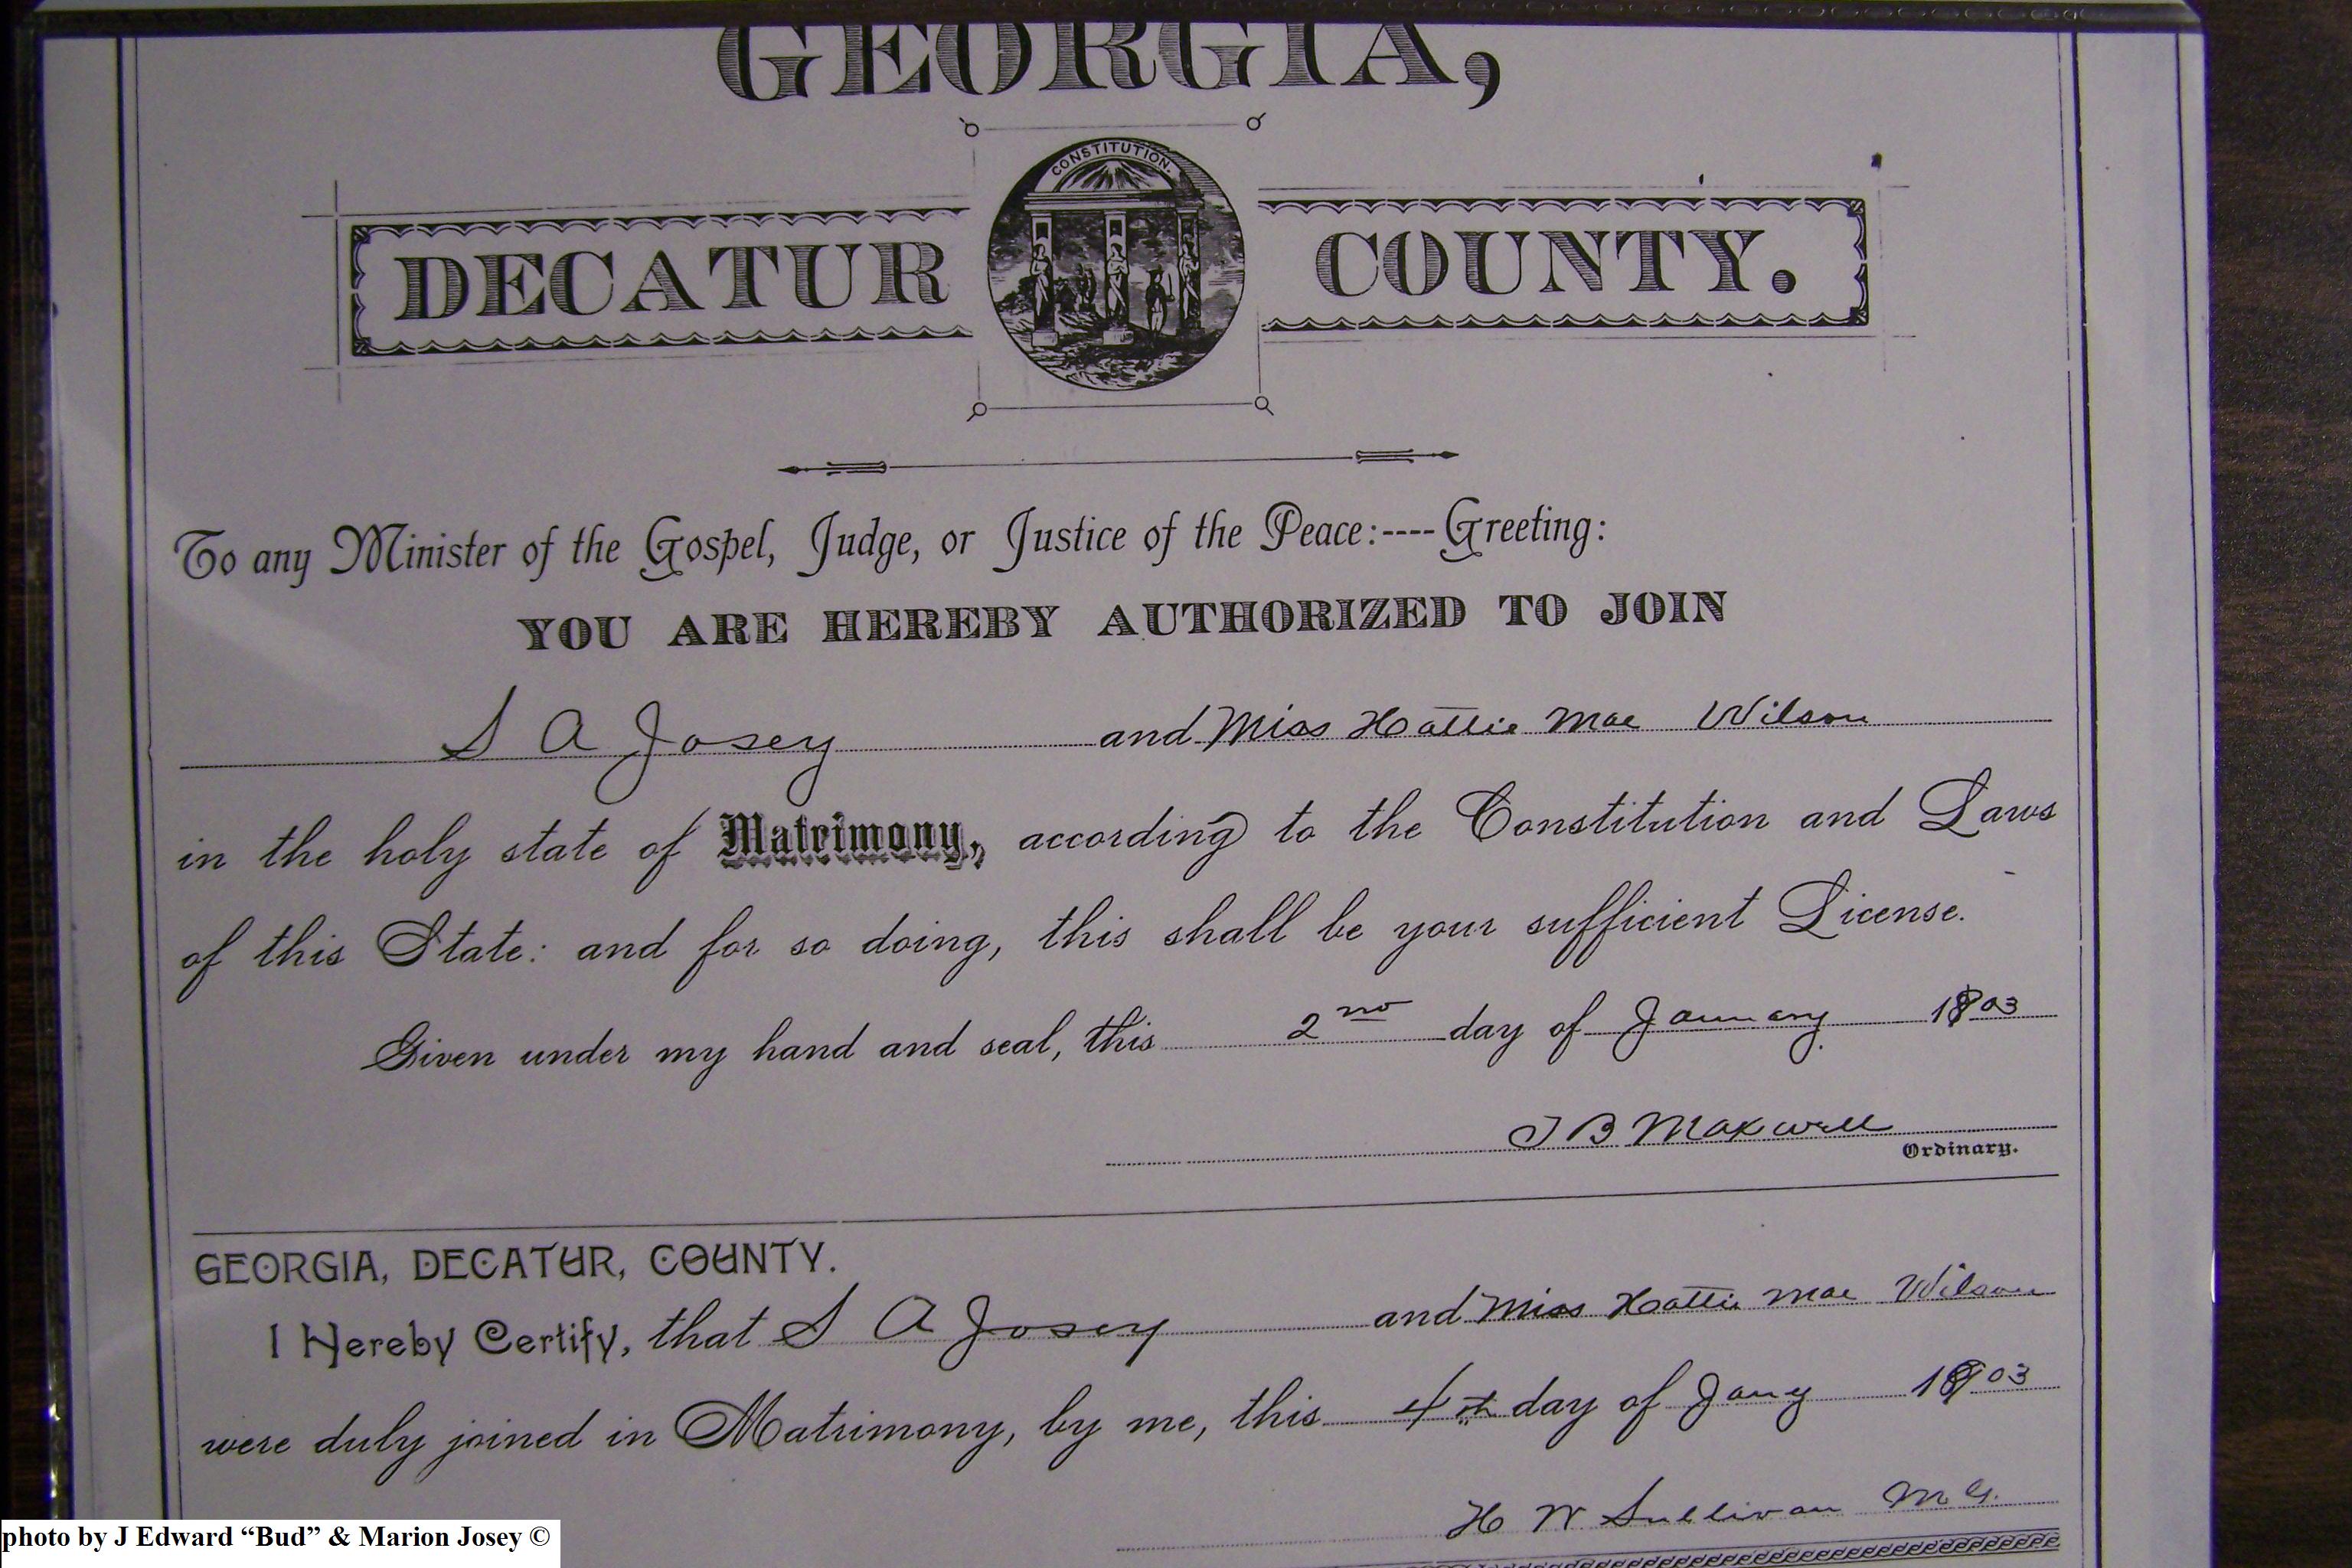 GEORGIA,
CONSTITUTION.
DECATUR COUNTY.
To any Minister of the Gospel, Judge, or Justice of the Peace:----Greeting:
YOU ARE HEREBY AUTHORIZED TO JOIN
S A Josey and Miss Hattie Mae Wilson
in the holy state of Matrimony, according to the Constitution and Laws
of this State: and for so doing, this shall be your sufficient License.
Given under my hand and seal, this 2nd day of January 1903
T B Maxwell
Ordinary.
GEORGIA, DECATUR, COUNTY.
I Hereby Certify, that S A Josey and Miss Hattie Mae Wilson
were duly joined in Matrimony, by me, this 4th day of Jany 1903
H W Sullivan M G.
photo by J Edward “Bud” & Marion Josey ©